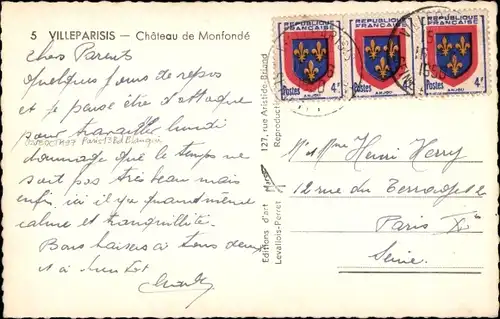 5 VILLEPARISIS — Château de Monfondé
Chers Parents
Quelques jours de repos
et je pense être d'attaque
pour travailler lundi
dommage que le temps ne
soit pas très beau mais
enfin, ici il y a quand même
calme et tranquillité.
Bons baisers à tous deux
et à
Editions d'art
Levallois-Perret
127, rue Aristide-Briand
Reproduction
REPUBLIQUE FRANÇAISE
Postes 4F
ANJOU
REPUBLIQUE FRANÇAISE
Postes 4F
ANJOU
REPUBLIQUE FRANÇAISE
Postes 4F
ANJOU
M et Mme Henri Herry
12 rue du
Paris XIe
Seine.